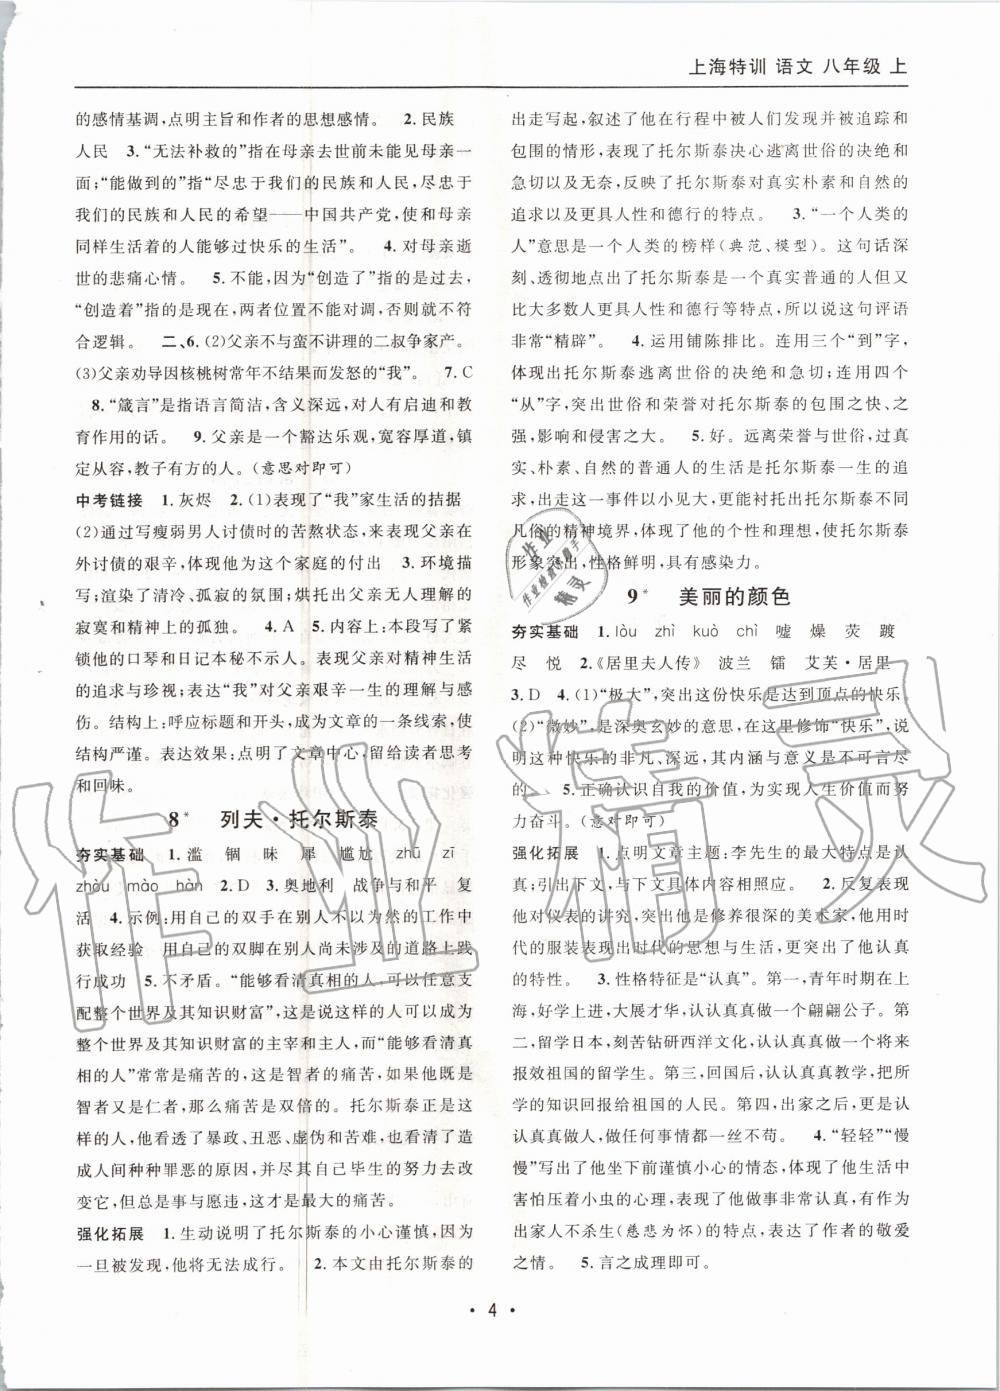 上海特训 语文 八年级 上
的感情基调，点明主旨和作者的思想感情。 2.民族
人民 3.“无法补救的”指在母亲去世前未能见母亲一
面；“能做到的”指“尽忠于我们的民族和人民，尽忠于
我们的民族和人民的希望——中国共产党，使和母亲
同样生活着的人能够过快乐的生活”。 4.对母亲逝
世的悲痛心情。 5.不能，因为“创造了”指的是过去，
“创造着”指的是现在，两者位置不能对调，否则就不符
合逻辑。 二、6.(2)父亲不与蛮不讲理的二叔争家产。
(3)父亲劝导因核桃树常年不结果而发怒的“我”。 7.C
8.“箴言”是指语言简洁，含义深远，对人有启迪和教
育作用的话。 9.父亲是一个豁达乐观，宽容厚道，镇
定从容，教子有方的人。（意思对即可）
中考链接 1.灰烬 2.(1)表现了“我”家生活的拮据
(2)通过写瘦弱男人讨债时的苦熬状态，来表现父亲在
外讨债的艰辛，甘愿为这个家庭的付出 3.环境描
写；渲染了清冷、孤寂的氛围；烘托出父亲无人理解的
寂寞和精神上的孤独。 4.A 5.内容上：本段写了紧
锁他的口琴和日记本秘不示人。表现父亲对精神生活
的追求与珍视；表达“我”对父亲艰辛一生的理解与感
伤。结构上：呼应标题和开头，成为文章的一条线索，使
结构严谨。表达效果：点明了文章中心，留给读者思考
和回味。
8* 列夫·托尔斯泰
夯实基础 1.滥 锢 昧 犀 尴尬 zhū zī
zhòu mào hàn 2.D 3.奥地利 战争与和平 复
活 4.示例：用自己的双手在别人不以为然的工作中
获取经验 用自己的双脚在别人尚未涉及的道路上践
行成功 5.不矛盾。“能够看清真相的人，可以任意支
配整个世界及其知识财富”，这是说这样的人可以成为
整个世界及其知识财富的主宰和主人，而“能够看清真
相的人”常常是痛苦的，因为这是智者的痛苦，如果是
智者又是仁者，那么痛苦是双倍的。托尔斯泰正是这
样的人，他看透了暴政、丑恶、虚伪和苦难，也看清了造
成人间种种罪恶的原因，并尽其自己毕生的努力去改
变它，但总是事与愿违，这才是最大的痛苦。
强化拓展 1.生动说明了托尔斯泰的小心谨慎，因为
一旦被发现，他将无法成行。 2.本文由托尔斯泰的
出走写起，叙述了他在行程中被人们发现以及被追踪和
包围的情形，表现了托尔斯泰决心逃离世俗的决绝和
急切以及无奈，反映了托尔斯泰对真实朴素和自然的
追求以及更具人性和德行的特点。 3.“一个人类的
人”意思是一个人类的榜样（典范、模型）。这句话深
刻、透彻地点出了托尔斯泰是一个真实普通的人但又
比大多数人更具人性和德行等特点，所以说这句评语
非常“精辟”。 4.运用铺陈排比。连用三个“到”字，
体现出托尔斯泰逃离世俗的决绝和急切；连用四个
“从”字，突出世俗和荣誉对托尔斯泰的包围之快、之
强，影响和侵害之大。 5.好。远离荣誉与世俗，过真
实、朴素、自然的普通人的生活是托尔斯泰一生的追
求，出走这一事件以小见大，更能衬托出托尔斯泰不同
凡俗的精神境界，体现了他的个性和理想，使托尔斯泰
形象突出，性格鲜明，具有感染力。
9* 美丽的颜色
夯实基础 1.lòu zhì kuò chì 嘘 燥 荧 踱
尽 悦 2.《居里夫人传》 波兰 镭 艾芙·居里
3.D 4.(1)“极大”，突出这份快乐是达到顶点的快乐。
(2)“微妙”，是深奥玄妙的意思，在这里修饰“快乐”，说
明这种快乐的非凡、深远，其内涵与意义是不可言尽
的 5.正确认识自我的价值，为实现人生价值而努
力奋斗。（意对即可）
强化拓展 1.点明文章主题：李先生的最大特点是认
真；引出下文，与下文具体内容相照应。 2.反复表现
他对仪表的讲究，突出他是修养很深的美术家，他用时
代的服装表现出时代的思想与生活，更突出了他认真
的特性。 3.性格特征是“认真”。第一，青年时期在上
海，好学上进，大展才华，认认真真做一个翩翩公子。第
二，留学日本，刻苦钻研西洋文化，认认真真做一个将来
报效祖国的留学生。第三，回国后，认认真真教学，把所
学的知识回报给祖国的人民。第四，出家之后，更是认认
真真做人，做任何事情都一丝不苟。 4.“轻轻”“慢
慢”写出了他坐下前谨慎小心的情态，体现了他生活中
害怕压着小虫的心理，表现他真是做人非常认真，有作为
出家人不杀生（慈悲为怀）的特点，表达了作者的敬爱
之情。 5.言之成理即可。
· 4 ·
作业精灵
作业精灵